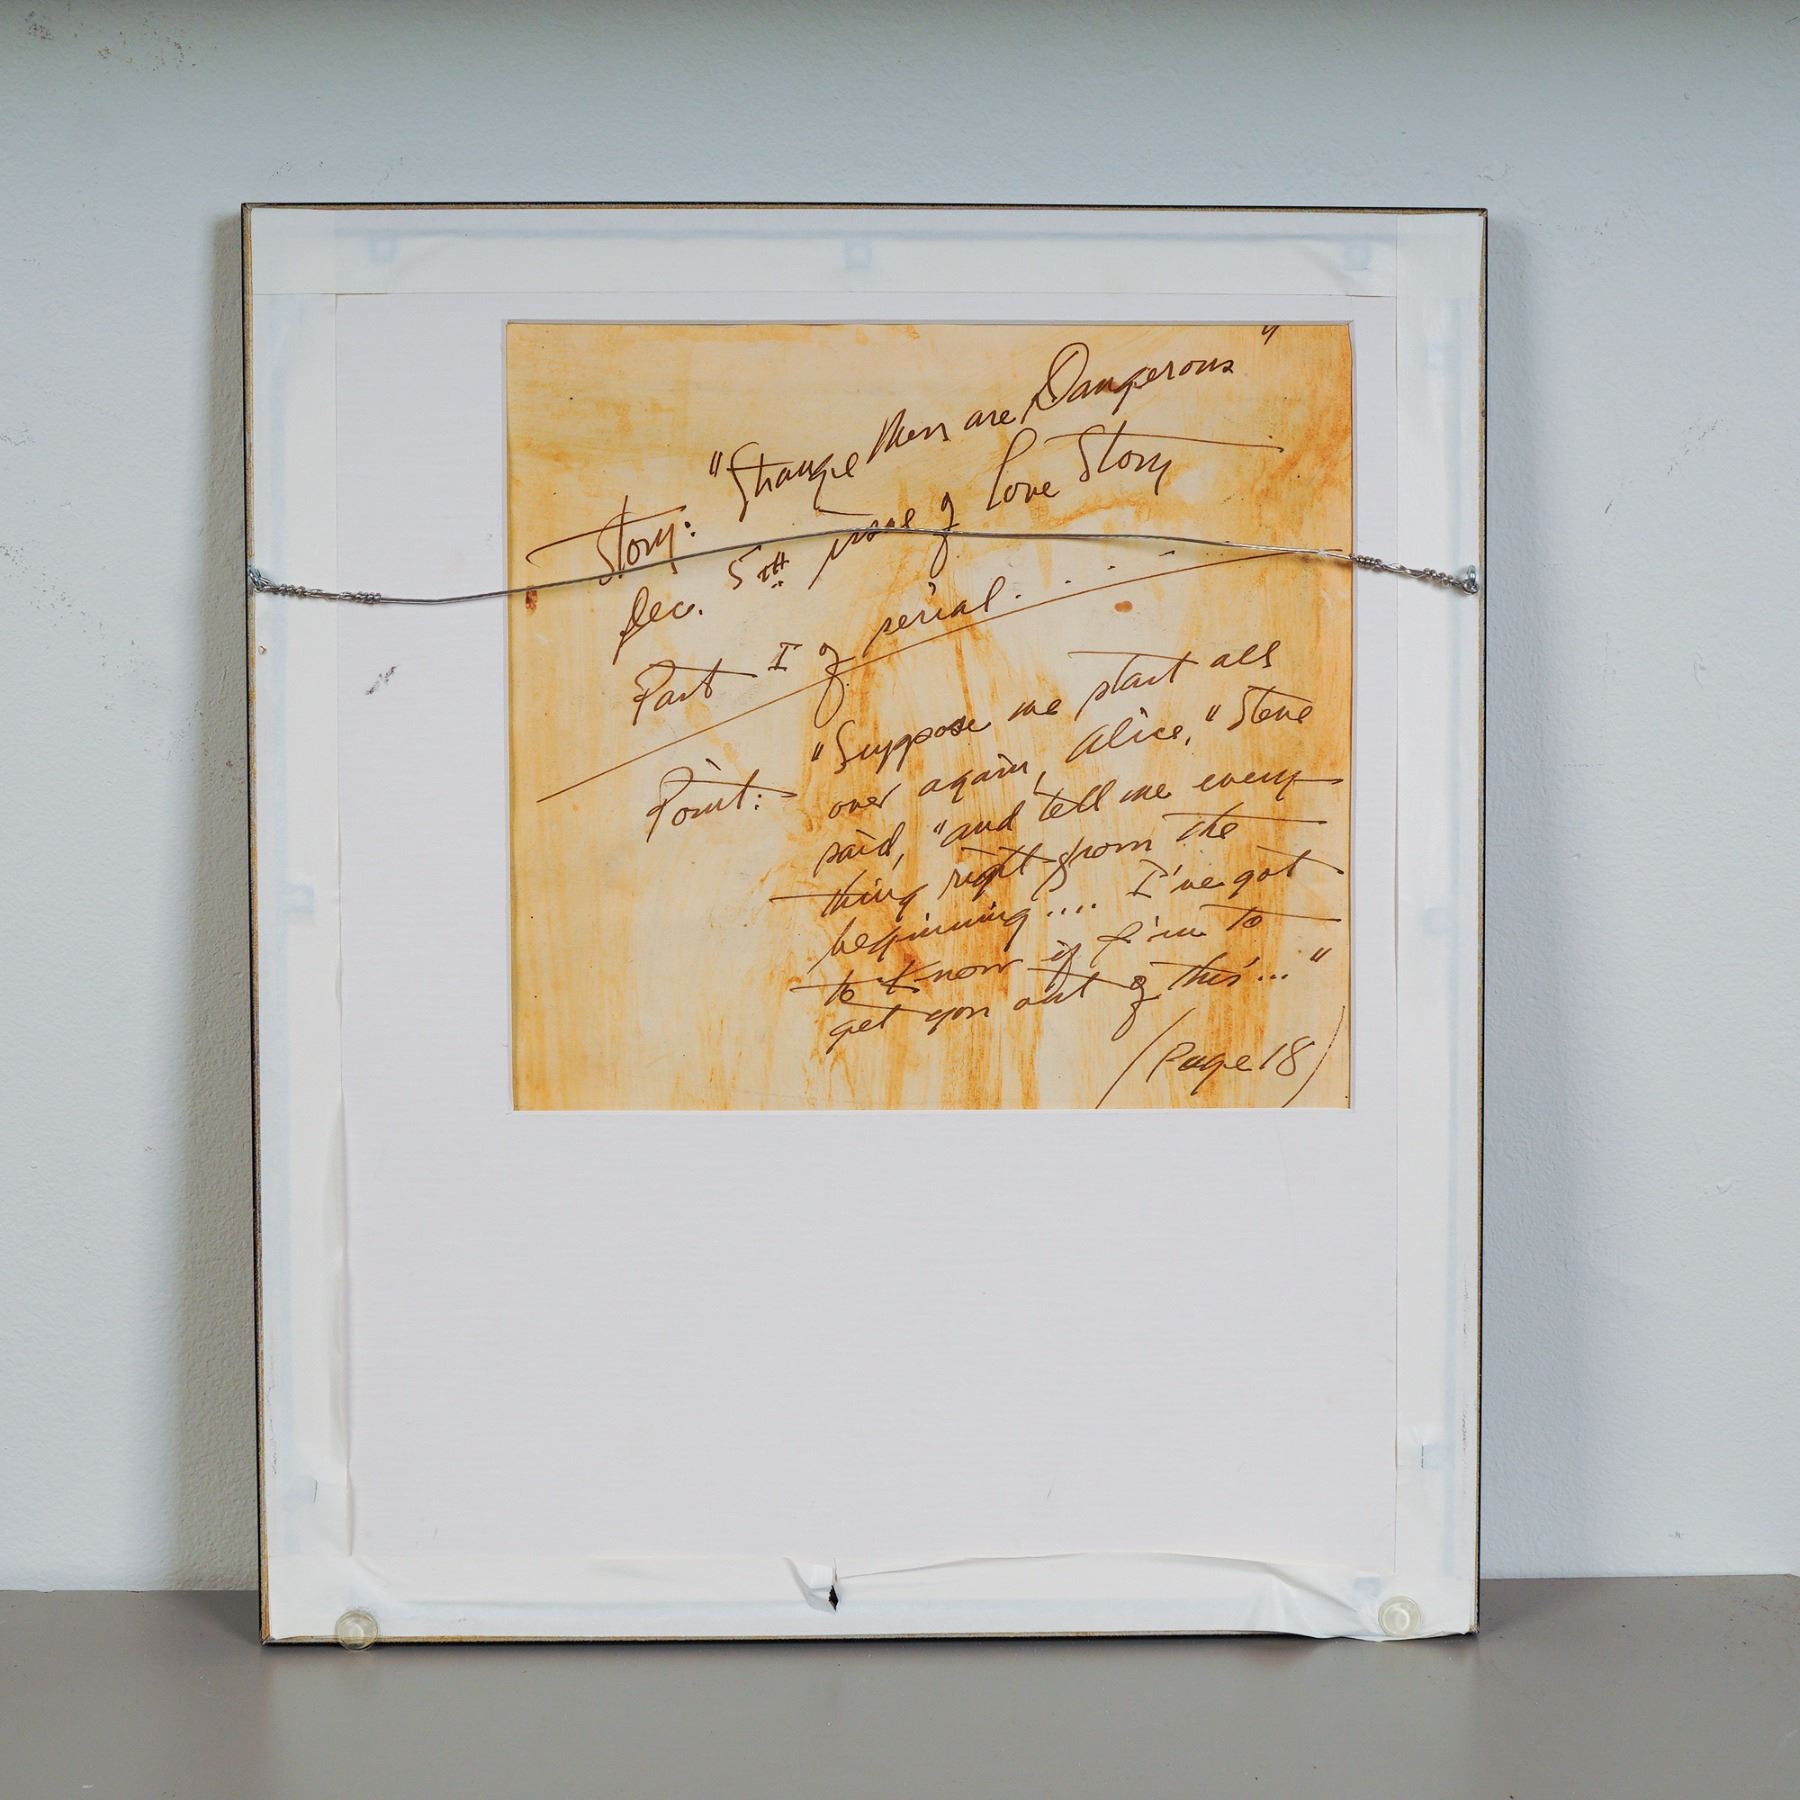 Story: "Strange Men are Dangerous"
Dec. 5th issue of Love Story
Part I of serial. . . .
Point: "Suppose we start all
over again, Alice," Steve
said, "and tell me every
thing right from the
beginning.... I've got
to know if I'm to
get you out of this..."
(Page 18)